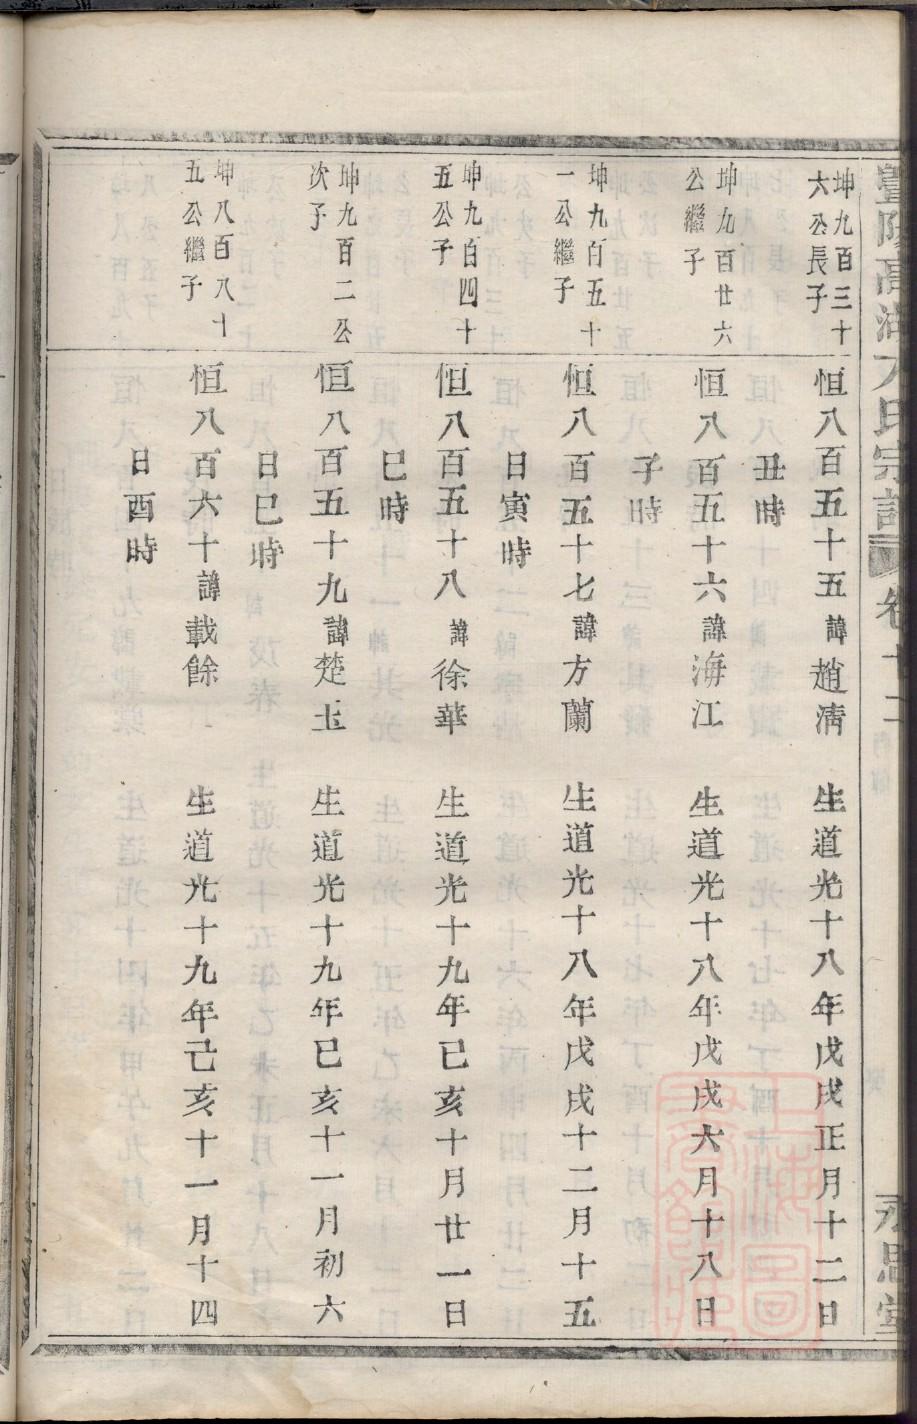 暨陽高湖方氏宗譜 卷十二 永思堂
坤九百三十
六公長子
恒八百五十五 諱趙淸 生道光十八年戊戌正月十二日
丑時
坤九百廿六
公繼子
恒八百五十六 諱海江 生道光十八年戊戌六月十八日
子時
坤九百五十
一公繼子
恒八百五十七 諱方蘭 生道光十八年戊戌十二月十五
日寅時
坤九百四十
五公子
恒八百五十八 諱徐華 生道光十九年己亥十月廿一日
巳時
坤九百二公
次子
恒八百五十九 諱楚玉 生道光十九年己亥十一月初六
日巳時
坤八百八十
五公繼子
恒八百六十 諱載餘 生道光十九年己亥十一月十四
日酉時